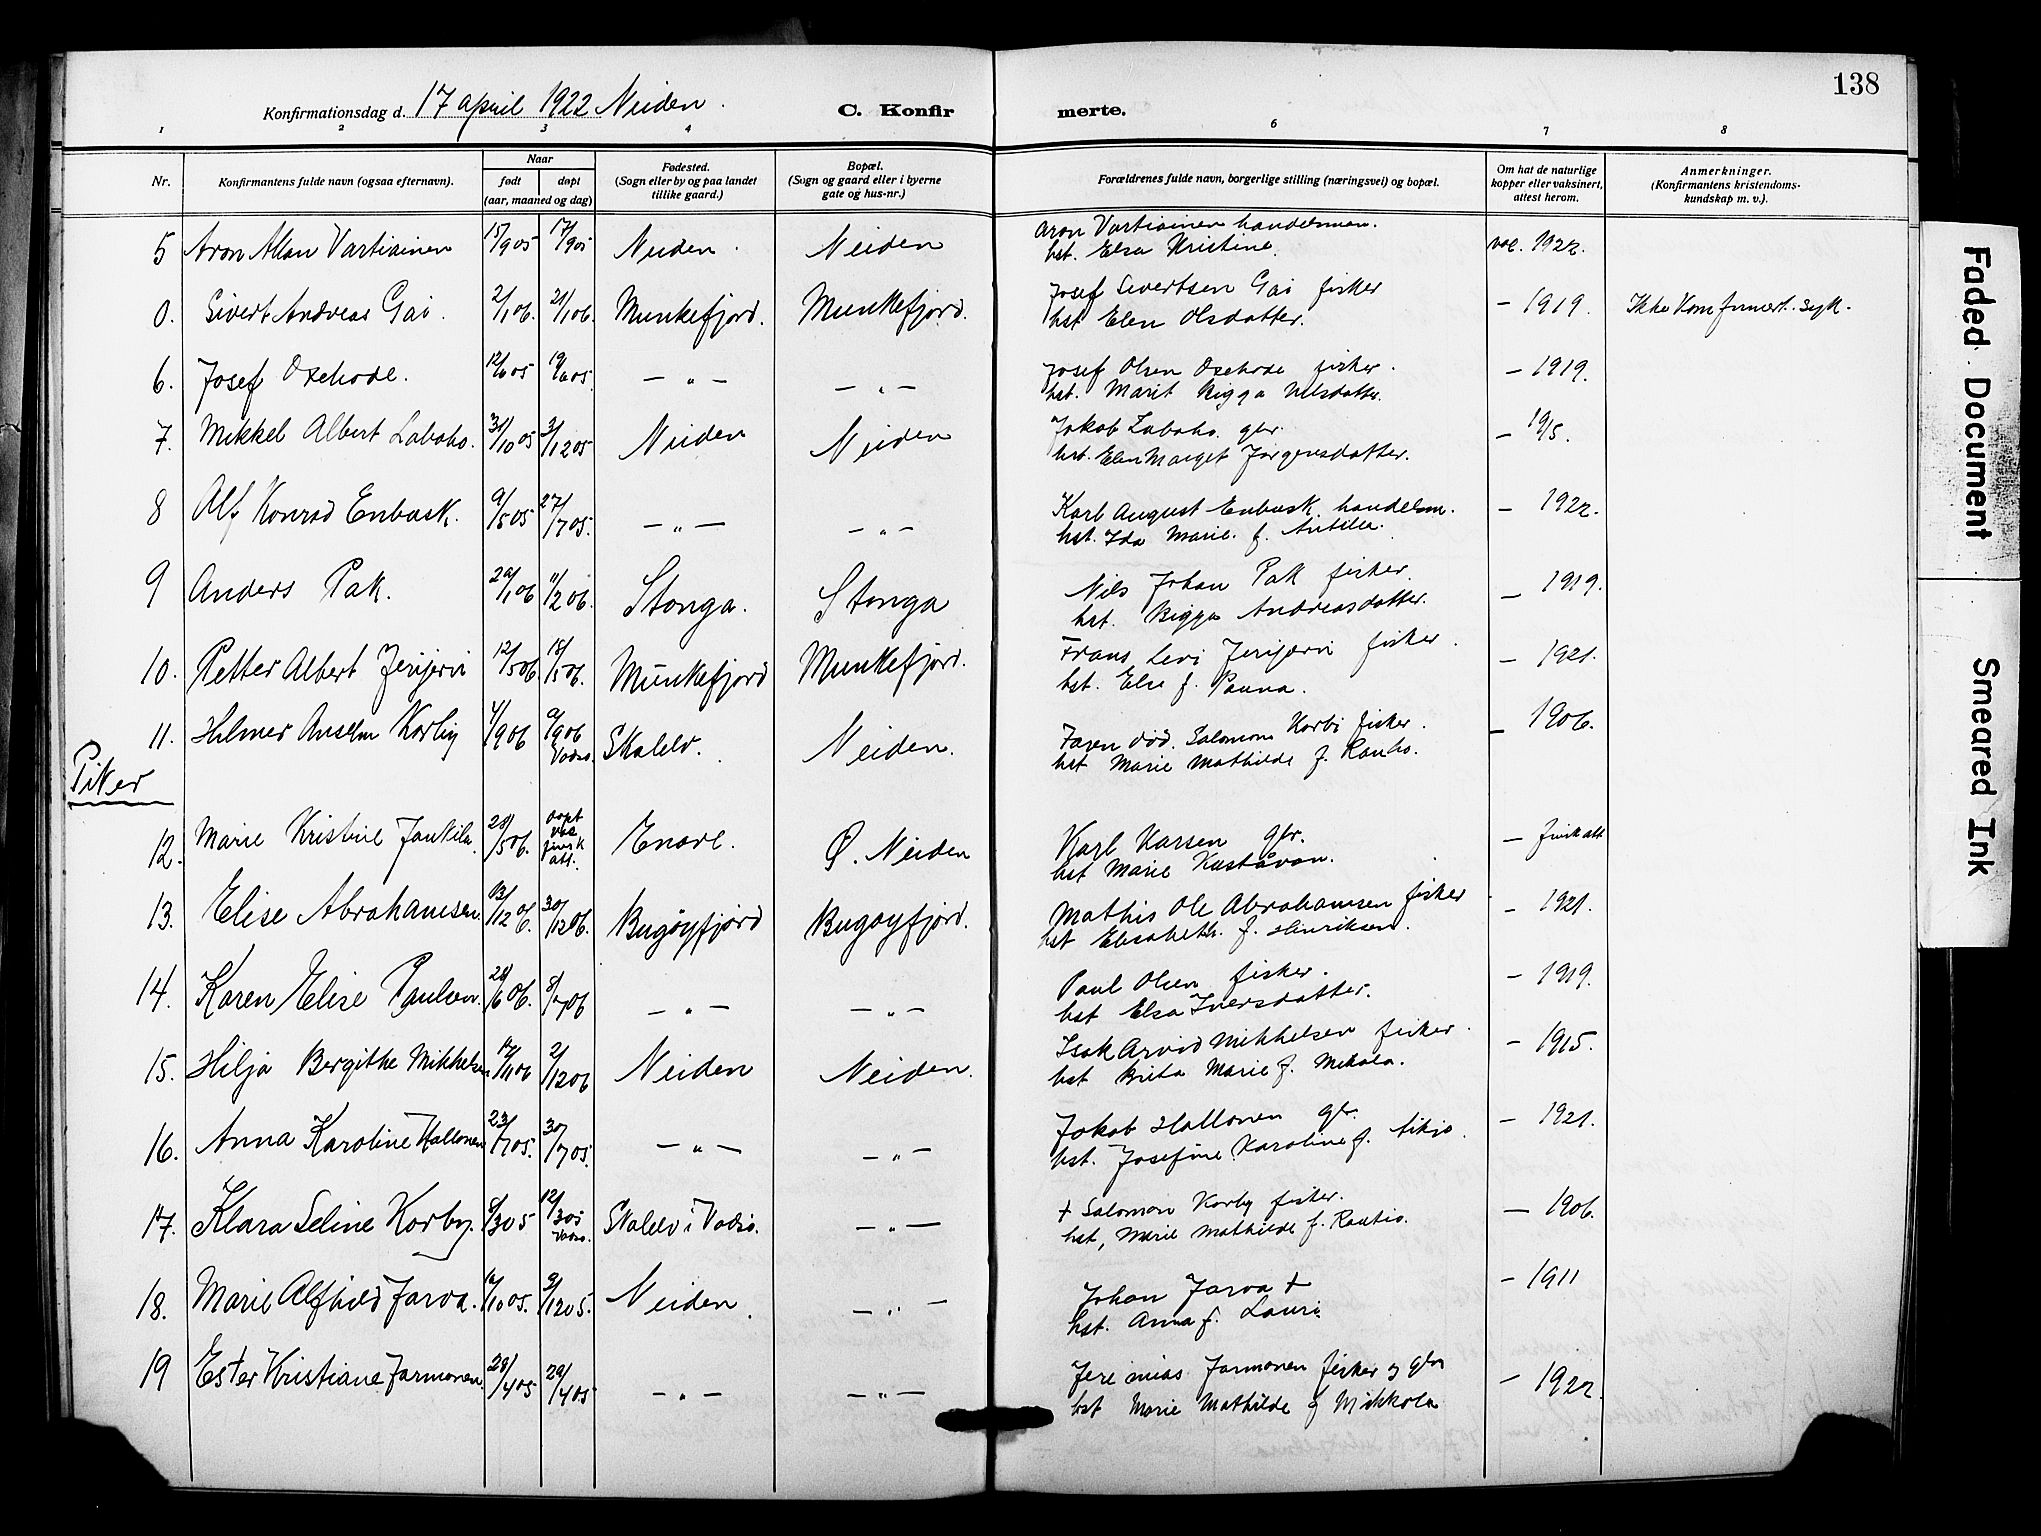 138
Konfirmationsdag d. 17 april 1922 Neiden.
C. Konfir merte.
1 2 3 4 6 7 8
Nr. Konfirmantens fulde navn (ogsaa efternavn). Naar født døpt (aar, maaned og dag) Fødested. (Sogn eller by og paa landet tillike gaard.) Bopæl. (Sogn og gaard eller i byerne gate og hus-nr.) Forældrenes fulde navn, borgerlige stilling (næringsvei) og bopæl. Om hat de naturlige kopper eller vaksinert, attest herom. Anmerkninger. (Konfirmantens kristendoms- kundskap m. v.).
5 Aron Allan Vartiainen 15/9 05 17/9 05 Neiden. Neiden Aron Vartiainen handelsman. vac. 1922.
hst. Elsa Kristine.
0. Sivert Andreas Gai. 2/1 06. 21/1 06. Munkefjord. Munkefjord. Josef Sivertsen Gai fisker — 1919. Ikke konfirmert. syk.
hst Elen Olsdatter.
6. Josef Oxehode. 12/6 05 19/6 05. — „ — — „ — Josef Olsen Oxehode fisker. — 1919.
hst. Marit Bigga Nilsdatter.
7. Mikkel Albert Laboho. 31/10 05 3/12 05 Neiden Neiden Jakob Laboho. gbr. — 1915.
hst. Elen Marget Jørgensdatter.
8 Alf Konrad Enbusk. 9/5 05 27/7 05. — „ — — „ — Karl August Enbusk handelsm. — 1922.
hst. Ida Marie. f. Anttila.
9 Anders Pak. 29/1 06 11/2 06. Stonga. Stonga Nils Johan Pak fisker. — 1919.
hst. Bigga Andreasdatter.
10. Petter Albert Jerijervi 12/5 06. 18/5 06. Munkefjord Munkefjord. Frans Levi Jerijervi fisker. — 1921.
hst. Else f. Pauna.
11. Hilmer Anselm Korby 4/9 06 9/9 06 Vadsø. Skalelv. Neiden. Faren død. Salomon Korbi fisker. — 1906.
hst Marie Mathilde f. Rauho.
Piker
12. Marie Kristine Jankila. 28/5 06. døpt finsk att. Enare. Ø. Neiden Karl Karsen gbr. — finsk att
hst Marie Kustavan.
13. Elise Abrahamsen. 13/12 06. 30/12 06. Bugøyfjord Bugøyfjord. Mathis Ole Abrahamsen fisker — 1921.
hst Elisabeth. f. Henriksen.
14. Karen Elise Paulsen. 28/6 06. 8/7 06 — „ — — „ — Paul Olsen fisker. — 1919.
hst Elsa Iversdatter.
15. Hilja Bergithe Mikkelsen 17/11 06 2/12 06 Neiden Neiden. Isak Arvid Mikkelsen fisker. — 1915.
hst Brita Marie f. Mikala.
16. Anna Karoline Hallonen 23/7 05. 30/7 05. — „ — — „ — Jakob Hallonen gbr. — 1921.
hst. Josefine Karoline f. Aikio.
17. Klara Seline Korby. 8/3 05 12/3 05 Vadsø. Skalelv i Vadsø. — „ — + Salomon Korby fisker. — 1906.
hst, Marie Mathilde f. Rautio.
18. Marie Alfhild Jarva. 16/10 05. 9/12 05. Neiden. — „ — Johan Jarva + — 1911
hst. Anna f. Lauri
19 Ester Kristiane Jarmonen. 28/4 05 29/4 05 — „ — — „ — Jeremias Jarmonen fisker og gbr — 1922.
hst Marie Mathilde f Mikkola
Faded Document
Smeared Ink